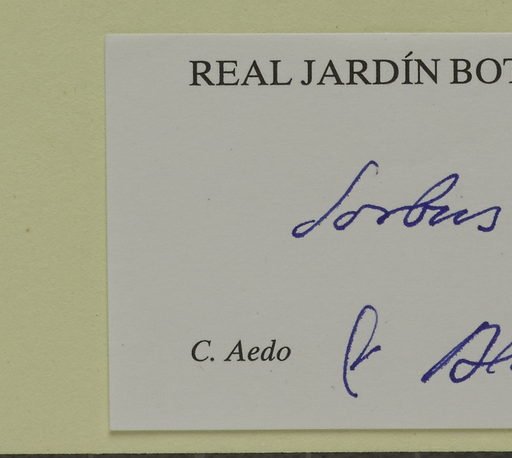 REAL JARDÍN BOT
Sorbus
C. Aedo &